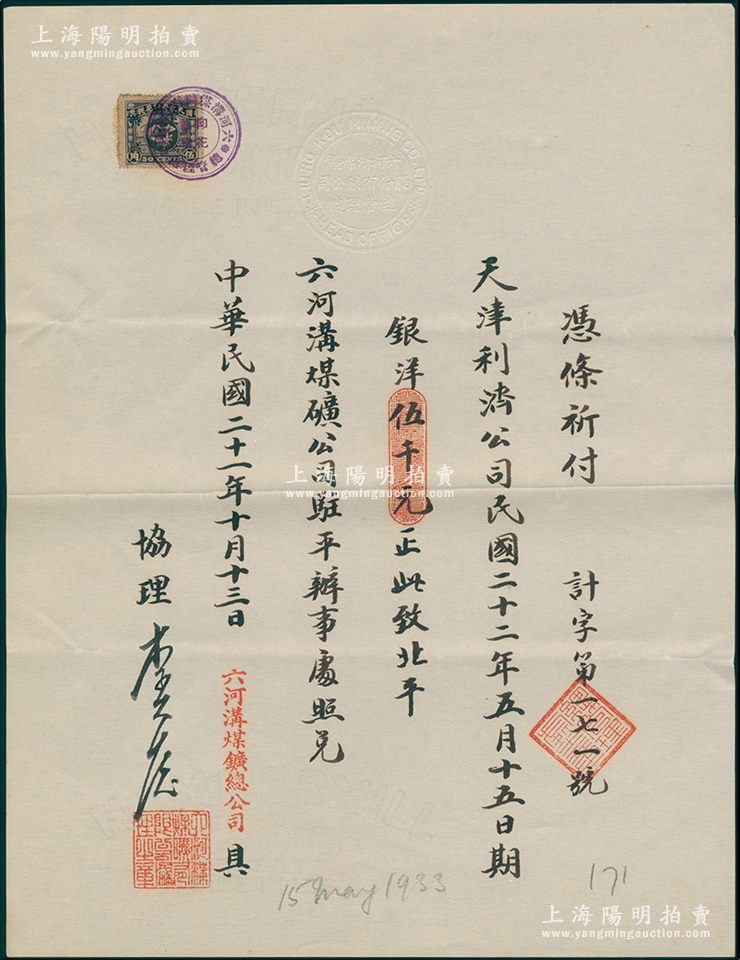 上海陽明拍賣
www.yangmingauction.com
憑條祈付
計字第一七一號
天津利濟公司民國二十二年五月十五日期
銀洋伍千元正此致北平
六河溝煤礦公司駐平辦事處照兌
中華民國二十一年十月十三日
六河溝煤鑛總公司 具
協理
50 CENTS
伍
角
LIU HO KOU MINING CO. LTD.
HEAD OFFICE
上海陽明拍賣
www.yangmingauction.com
15 May 1933
171
上海陽明拍賣
www.yangmingauction.com